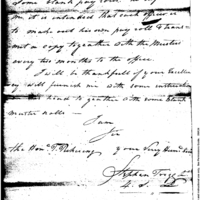 some blank pay rolls
me it is intended that each officer is
to make out his own pay roll & trans-
mit a copy together with the Muster
every two months to the office.
I will be thankfull if your Excellen-
cy will furnish me with some instruc-
hand together with some blank
muster rolls —
I am
Sir
The Hon. T. Pickering your Very Humb.
Stephen Trigg